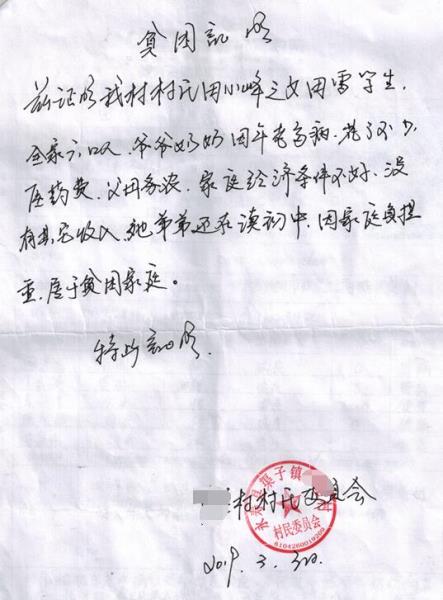 贫困证明
兹证明我村村民周小峰之女周雷学生，
全家六口人，爷爷奶奶因年老多病，花了不少
医药费，父母务农，家庭经济条件不好，没
有其它收入，她弟弟还在读初中，因家庭负担
重，属于贫困家庭。
特此证明。
村村民委员会
县渠子镇
村民委员会
2019.3.